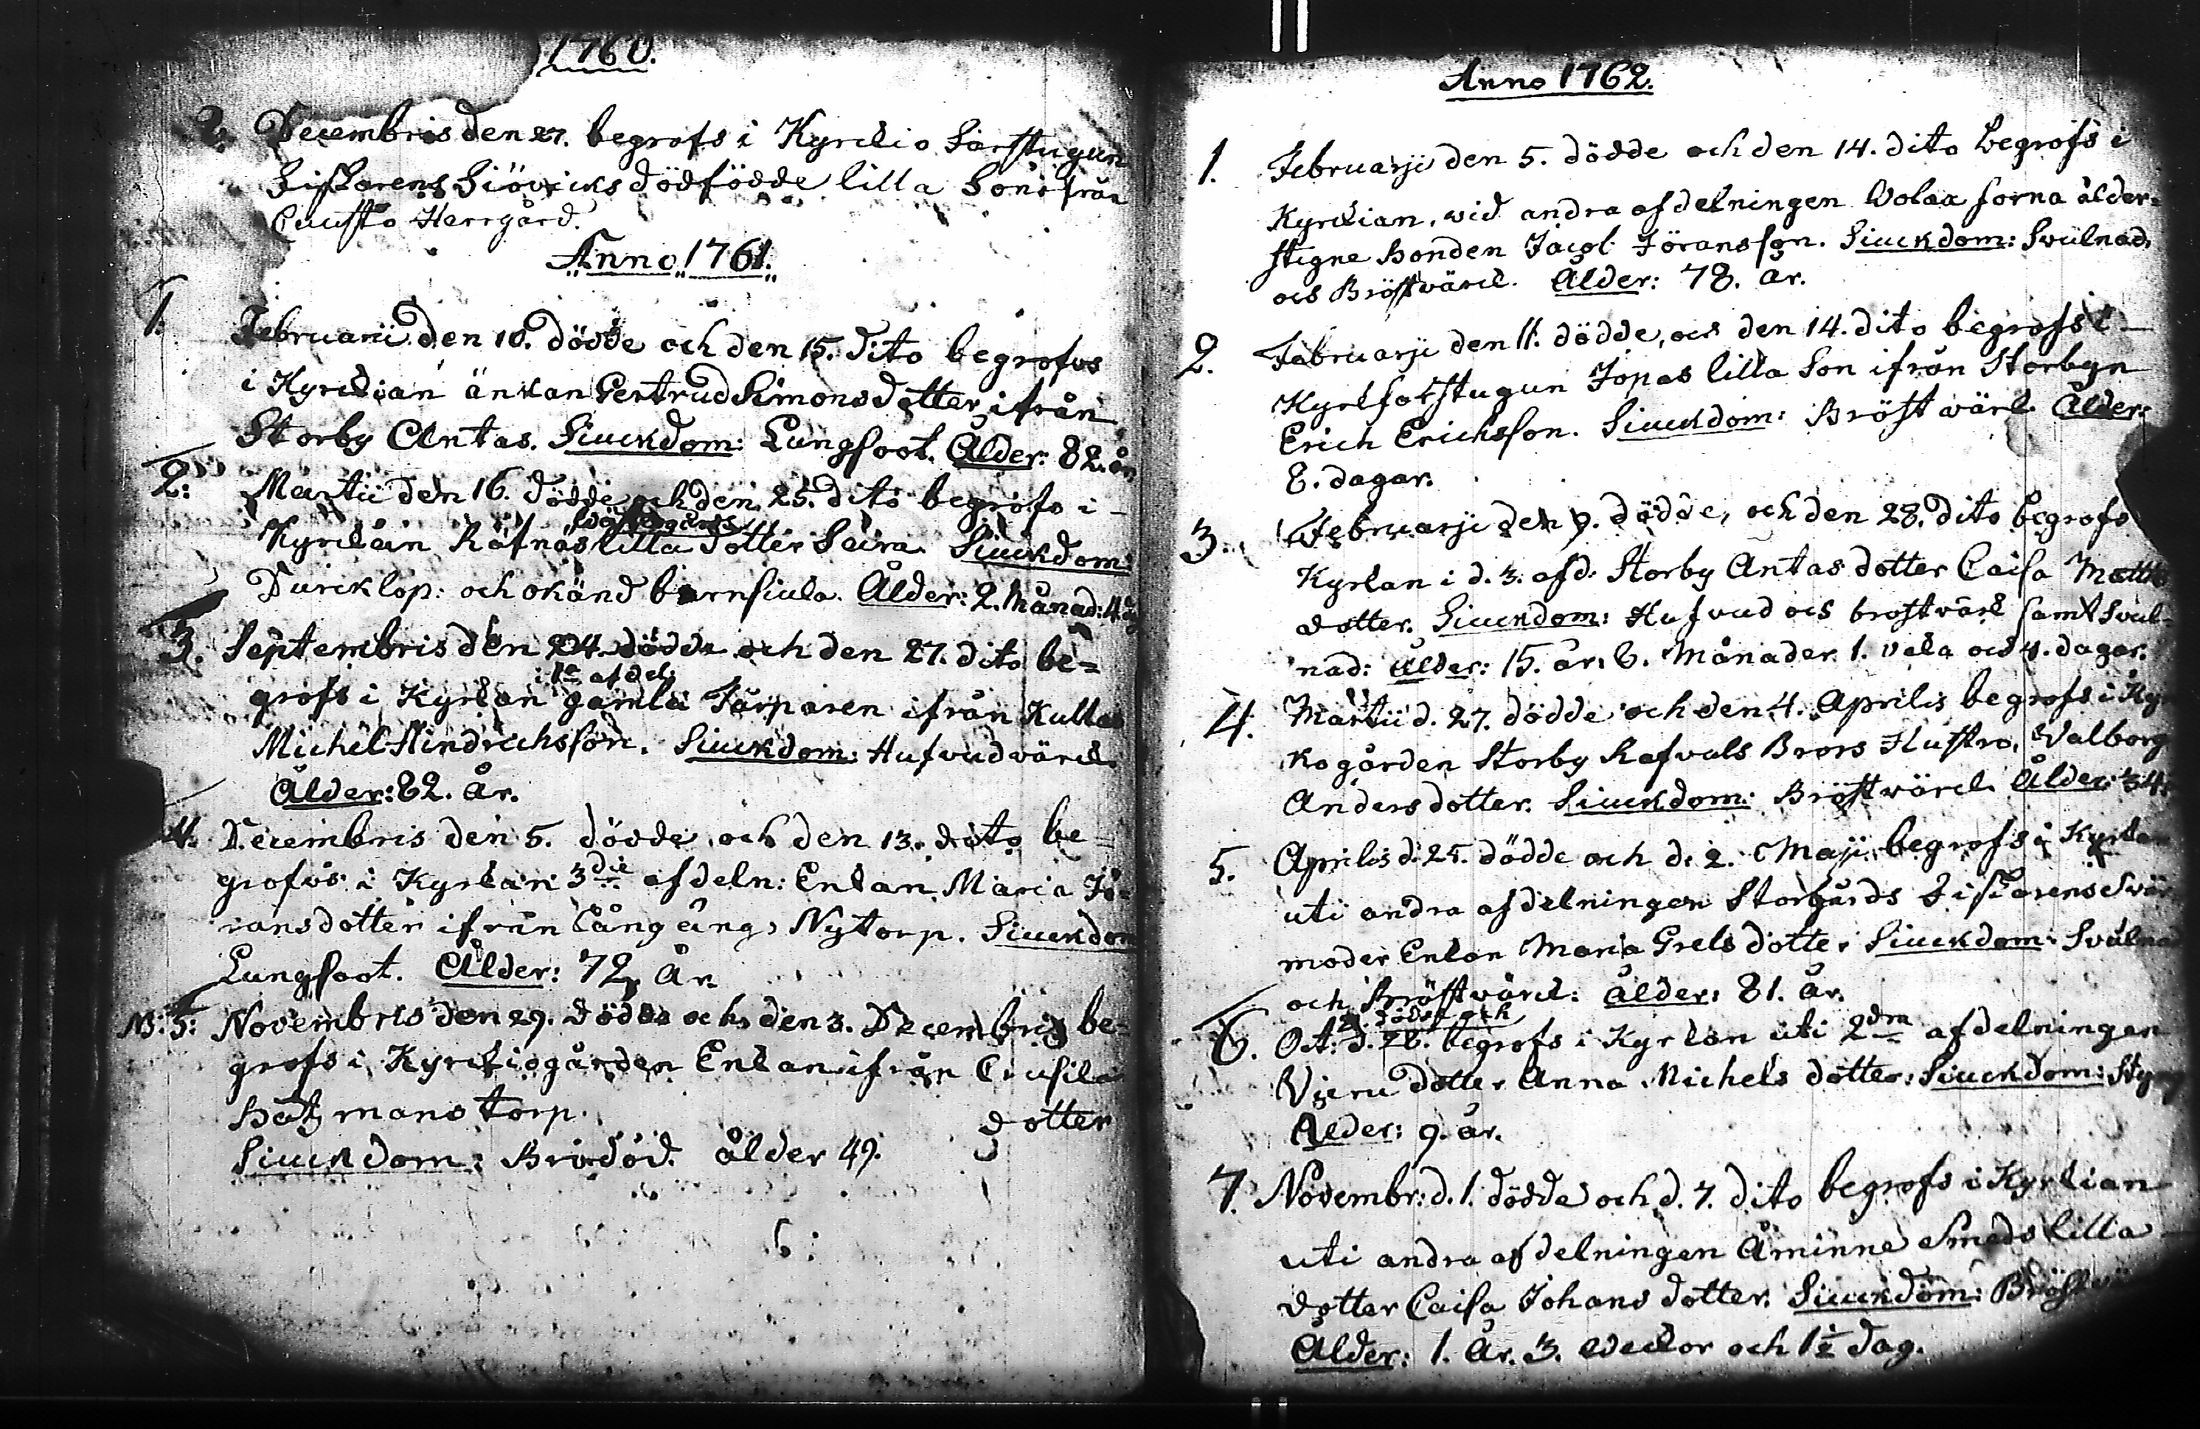 1760.
2. Decembris den 27. begrofs i Kyrckio
Fiskarens Siövicks dödfödde lilla Son ifrån
Cuusto Herrgård.
Anno 1761.
1. Februarii den 10. dödde och den 15. dito begrofvs
i Kyrckian änkan Gertrud Simonsdotter ifrån
Storby Antas. Siuckdom: Lungsoot. Ålder: 82. år
2: Martii den 16. dödde och den 25. dito begrofs i
Kyrckian Rafnäs lilla dotter Saira. Siuckdom:
Durcklop: och okänd barnsiuka. Ålder: 2. Månad: 4
3. Septembris den 24. dödde och den 27. dito be=
i 1a afdel:
grofs i Kyrkan gamla Torparen ifrån Kulla
Michel Hindrichsson. Siuckdom: Hufvudvärck
Ålder: 82. År.
4. Decembris den 5. dödde och den 13. dito be=
grofvs i Kyrkan 3die afdeln: Enkan Maria Jö=
ransdotter ifrån Långängs Nytorp. Siuckdom
Lungsoot. Ålder: 72 År.
N: 5: Novembris den 29. dödde och den 3. Decembris be=
grofs i Kyrckiogården Enkan ifrån
Båtzmans torp.
dotter
Siuckdom: Brådöd. ålder 49.
6:
Anno 1762.
1. Februarji den 5. dödde och den 14. dito begrofs i
Kyrckian, vid andra afdelningen Wolax forna ålder=
stigne Bonden Jacob Jöransson. Siuckdom: Svulnad
och Bröstvärck. Ålder: 78. år.
2. Februarji den 11. dödde, och den 14. dito begrofs i
Jonas lilla Son ifrån Storbyn
Erich Erichsson. Siuckdom: Bröstvärk Ålder:
8. dagar.
3. Februarji den 9. dödde, och den 28. dito begrofs
Kyrkan i d. 3. afd: Storby Antas dotter Caisa Matts
dotter. Siuckdom: Hufvud och bröstvärk samt Svul-
nad: ålder: 15. år. 6. Månader 1. veka och 4. dagar.
4. Martii d. 27. dödde och den 4. Aprilis begrofs i Kyr
kogården Storby Rafvals Brors Hustro, Valborg
Andersdotter. Siuckdom: Bröstvärck Ålder: 34.
5. Aprilis d. 25. dödde och d. 2. Maji begrofs i Kyrkan
uti andra afdelningen Storgårds Fiskarens Svär
moder Enkan Maria Grels dotter Siuckdom: Svulnad
och Bröstvärck: Ålder: 81. år.
dödde och
6. Oct: d. 28. begrofs i Kyrkan uti 2dra afdelningen
dotter Anna Michels dotter: Siuckdom:
Ålder: 9. år.
7. Novembr: d. 1. dödde och d. 7. dito begrofs i Kyrkian
uti andra afdelningen Åminne Smeds lilla
dotter Caisa Johans dotter. Siuckdom:
Ålder: 1. År. 3. veckor och 1½ dag.